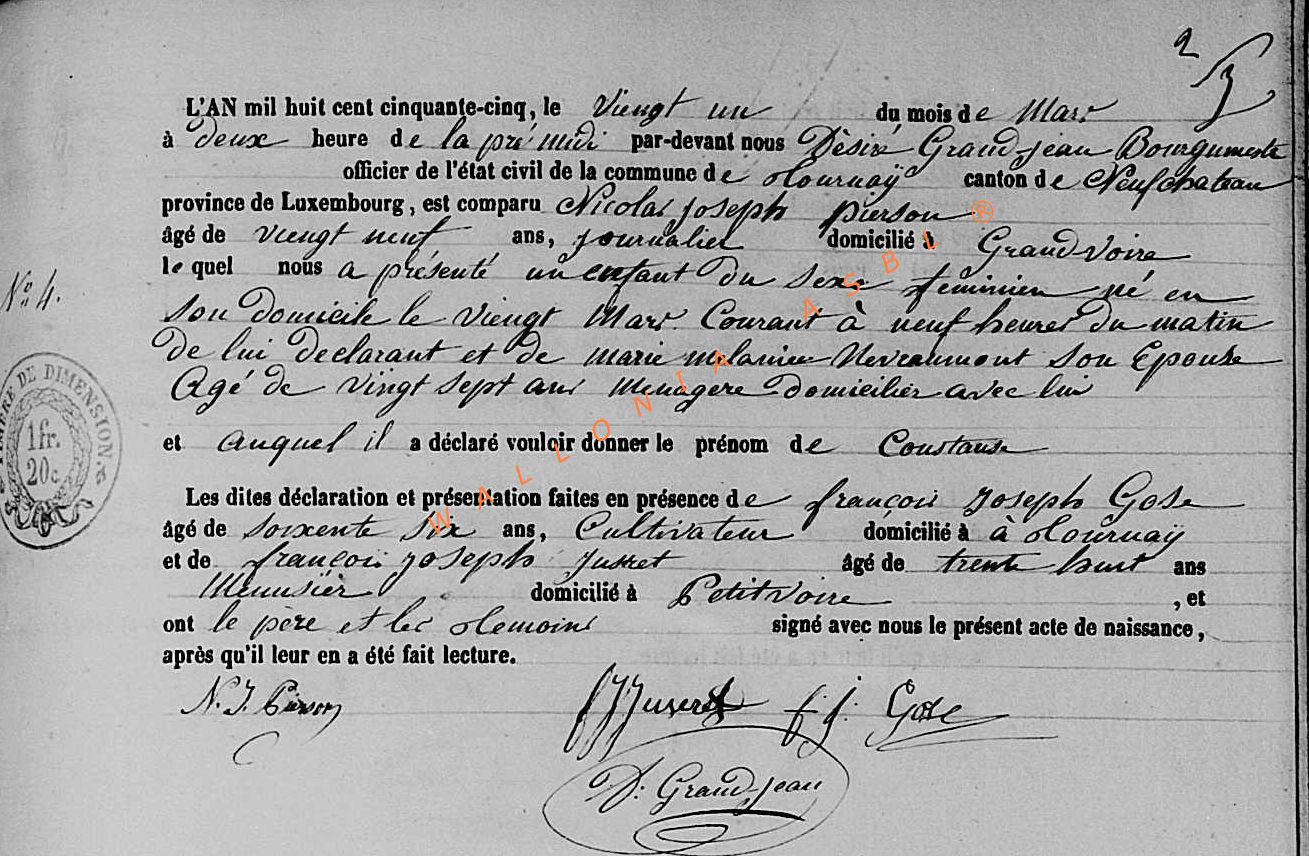 2
3
L'AN mil huit cent cinquante-cinq, le Viengt un du mois de Mars
à deux heure de la pré midi par-devant nous Dèsiré Grand-jean Bourgumestre
officier de l'état civil de la commune de tournaÿ canton de Neufchateau
province de Luxembourg, est comparu Nicolas joseph pierson
âgé de viengt neuf ans, journalier domicilié à Grandvoire
le quel nous a présenté un enfant du sexe féminien né en
Son domicile le viengt Mars Courant à neuf heures du matin
de lui declarant et de marie melanie Nevraumont son Epouse
Agé de vingt sept ans Menagère domicilier avec lui
et auquel il a déclaré vouloir donner le prénom de Constanse
Les dites déclaration et présentation faites en présence de françois Joseph Gose
âgé de soixente six ans, Cultivateur domicilié à à tournaÿ
et de françois joseph Jusret âgé de trente huit ans
Menusier domicilié à Petitvoire , et
ont le père et les temoins signé avec nous le présent acte de naissance,
après qu'il leur en a été fait lecture.
N. J. Pierson
fJJusret f. j. Gose
D. Grand-jean
No 4.
TIMBRE DE DIMENSION
1 fr.
20 c
WALLONIA ASBL ®